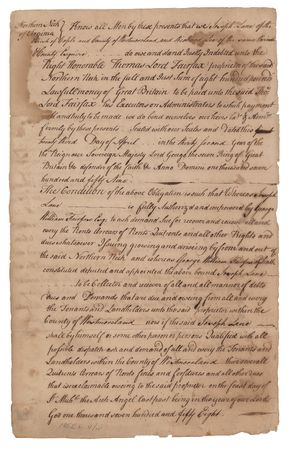 Northern Neck
of Virginia
Know all Men by these presents that we Joseph Lane of the
Parish of Cople and County of Westmoreland and of the same Parish &
County Esquire do owe and stand Justly Indebted unto the
Right Honorable Thomas Lord Fairfax proprietor of the said
Northern Neck in the full and Just Sum of eight hundred pounds
Lawfull money of Great Britain to be paid unto the said Thos
Lord Fairfax his Executors or Administrators to which payment
well and truly to be made we do bind ourselves our heirs Exrs & Admrs
firmly by these presents. Sealed with our Seals and Dated this
twenty third Day of April in the thirty second Year of the
the Reign our Sovereign Majesty Lord George the second King of Great
Britain &c defender of the faith & Anno Domini one thousand seven
hundred and fifty Nine
The Condition of the above Obligation is such that Whereas Joseph
Lane is fully Authorized and impowered by George
William Fairfax Esqr to ask demand sue for recover and receive all and
every the Rents Arrears of Rents Quitrents and all other Rights and
Dues whatsoever Issuing growing and arising by from and out of
the said Northern Neck and whereas George William Fairfax hath
constituted deputed and appointed the above bound Joseph Lane
to be Collector and receiver of all and all manner of debts
Dues and Demands that are due and owing from all and every
the Tenants and Landholders unto the said proprietor within the
County of Westmoreland now if the said Joseph Lane
shall by himself or some other person or persons Justified with all
possible dispatch ask and demand of all and every the Tenants and
Landholders within the County of Westmoreland their severall
Quitrents Arrears of Rents and all other dues
that is reclaimable owing to the said proprietor on the feast day of
St Mich: the Arch Angel last past being in the year of our Lord
God one thousand seven hundred and fifty Eight